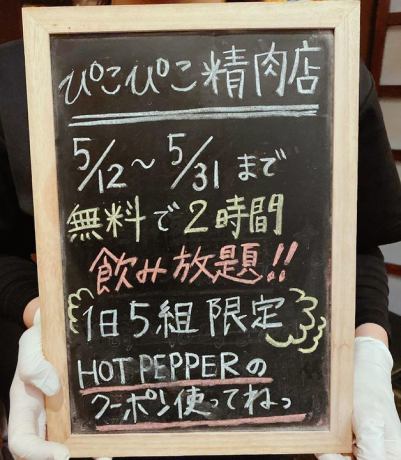 ぴこぴこ精肉店
5/12～5/31まで
無料で2時間
飲み放題!!
1日5組限定
HOT PEPPERの
クーポン使ってねっ